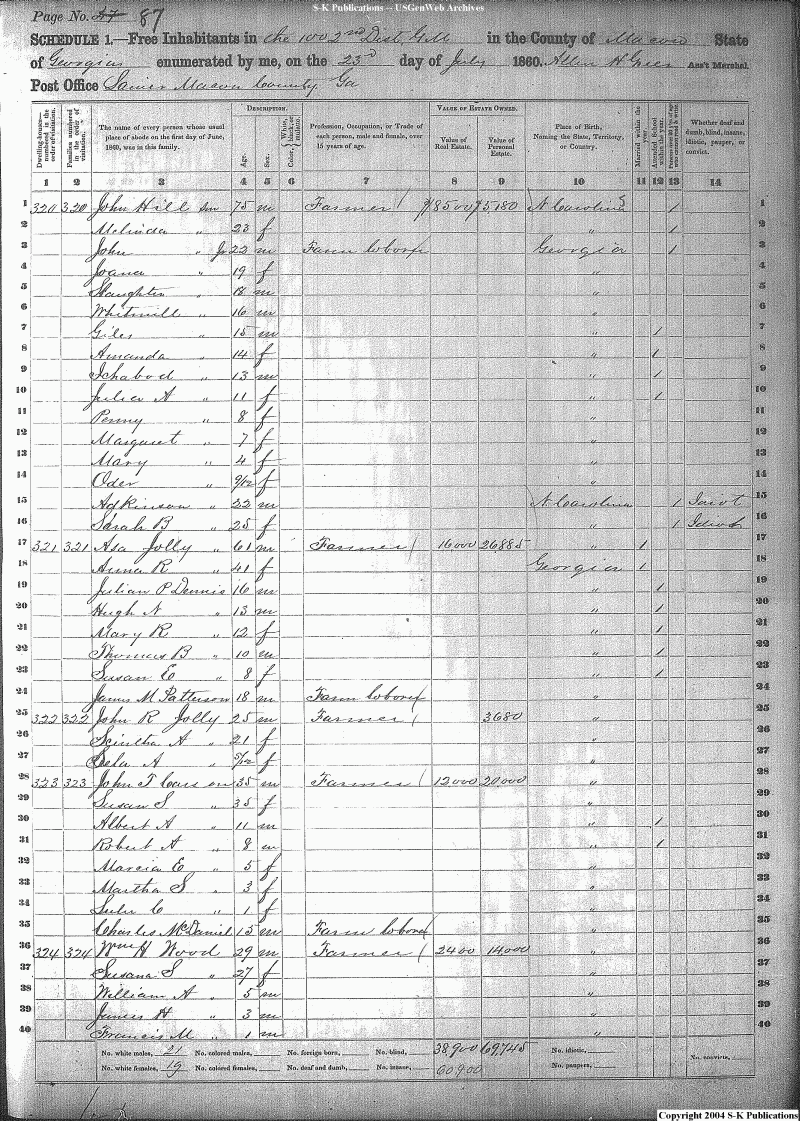 S-K Publications -- USGenWeb Archives
Page No. 87
SCHEDULE 1.—Free Inhabitants in the 1002nd Dist. G.M in the County of Macon State
of Georgia enumerated by me, on the 23d day of July 1860. Allen H Greer Ass't Marshal.
Post Office Macon County Ga
DESCRIPTION. VALUE OF ESTATE OWNED.
Dwelling-houses—numbered in the order of visitation. Families numbered in the order of visitation. The name of every person whose usual place of abode on the first day of June, 1860, was in this family. Age. Sex. Color, White, black, or mulatto. Profession, Occupation, or Trade of each person, male and female, over 15 years of age. Value of Real Estate. Value of Personal Estate. Place of Birth, Naming the State, Territory, or Country. Married within the year. Attended School within the year. Whether deaf and dumb, blind, insane, idiotic, pauper, or convict.
1 2 3 4 5 6 7 8 9 10 11 12 13 14
1 320 320 John Hill Sen 75 m Farmer 8500 5180 N Carolina 1 1
2 Melinda " 23 f " 1 2
3 John " Jr 22 m Farm laborer Georgia 1 3
4 Joana " 19 f " 4
5 Slaughter " 18 m " 5
6 Whitmill " 16 m " 6
7 Giles " 15 m " 1 7
8 Amanda " 14 f " 1 8
9 Ichabod " 13 m " 1 9
10 Julia A " 11 f " 1 10
11 Penny " 8 f " 11
12 Margaret " 7 f " 12
13 Mary " 4 f " 13
14 Oder " 9/12 f " 14
15 Adkinson " 22 m N Carolina 1 Idiot 15
16 Sarah B " 25 f " 1 Idiot 16
17 321 321 Asa Jolly 61 m Farmer 16000 26,885 " 1 17
18 Anna R " 41 f Georgia 1 18
19 Julian P Dennis 16 m " 1 19
20 Hugh N " 13 m " 1 20
21 Mary R " 12 f " 1 21
22 Thomas B " 10 m " 1 22
23 Susan E " 8 f " 1 23
24 James M Patterson 18 m Farm laborer " 24
25 322 322 John R Jolly 25 m Farmer 3680 " 25
26 A " 21 f " 26
27 A " 5/12 f " 27
28 323 323 John T 35 m Farmer 12000 20,000 " 28
29 Susan S " 35 f " 29
30 Albert A " 11 m " 1 30
31 Robert A " 8 m " 1 31
32 Marcia E " 5 f " 32
33 Martha S " 3 f " 33
34 Lulu C " 1 f " 34
35 Charles McDaniel 15 m Farm laborer " 35
36 324 324 Wm H Wood 29 m Farmer 2400 14,000 " 36
37 Susana S " 27 f " 37
38 William A " 5 m " 38
39 James H " 3 m " 39
40 Francis M " 1 m " 40
No. white males, 21 No. colored males, No. foreign born, No. blind, 38,900 69,745 No. idiotic, No. convicts,
No. white females, 19 No. colored females, No. deaf and dumb, No. insane, 60900 No. paupers,
Copyright 2004 S-K Publications